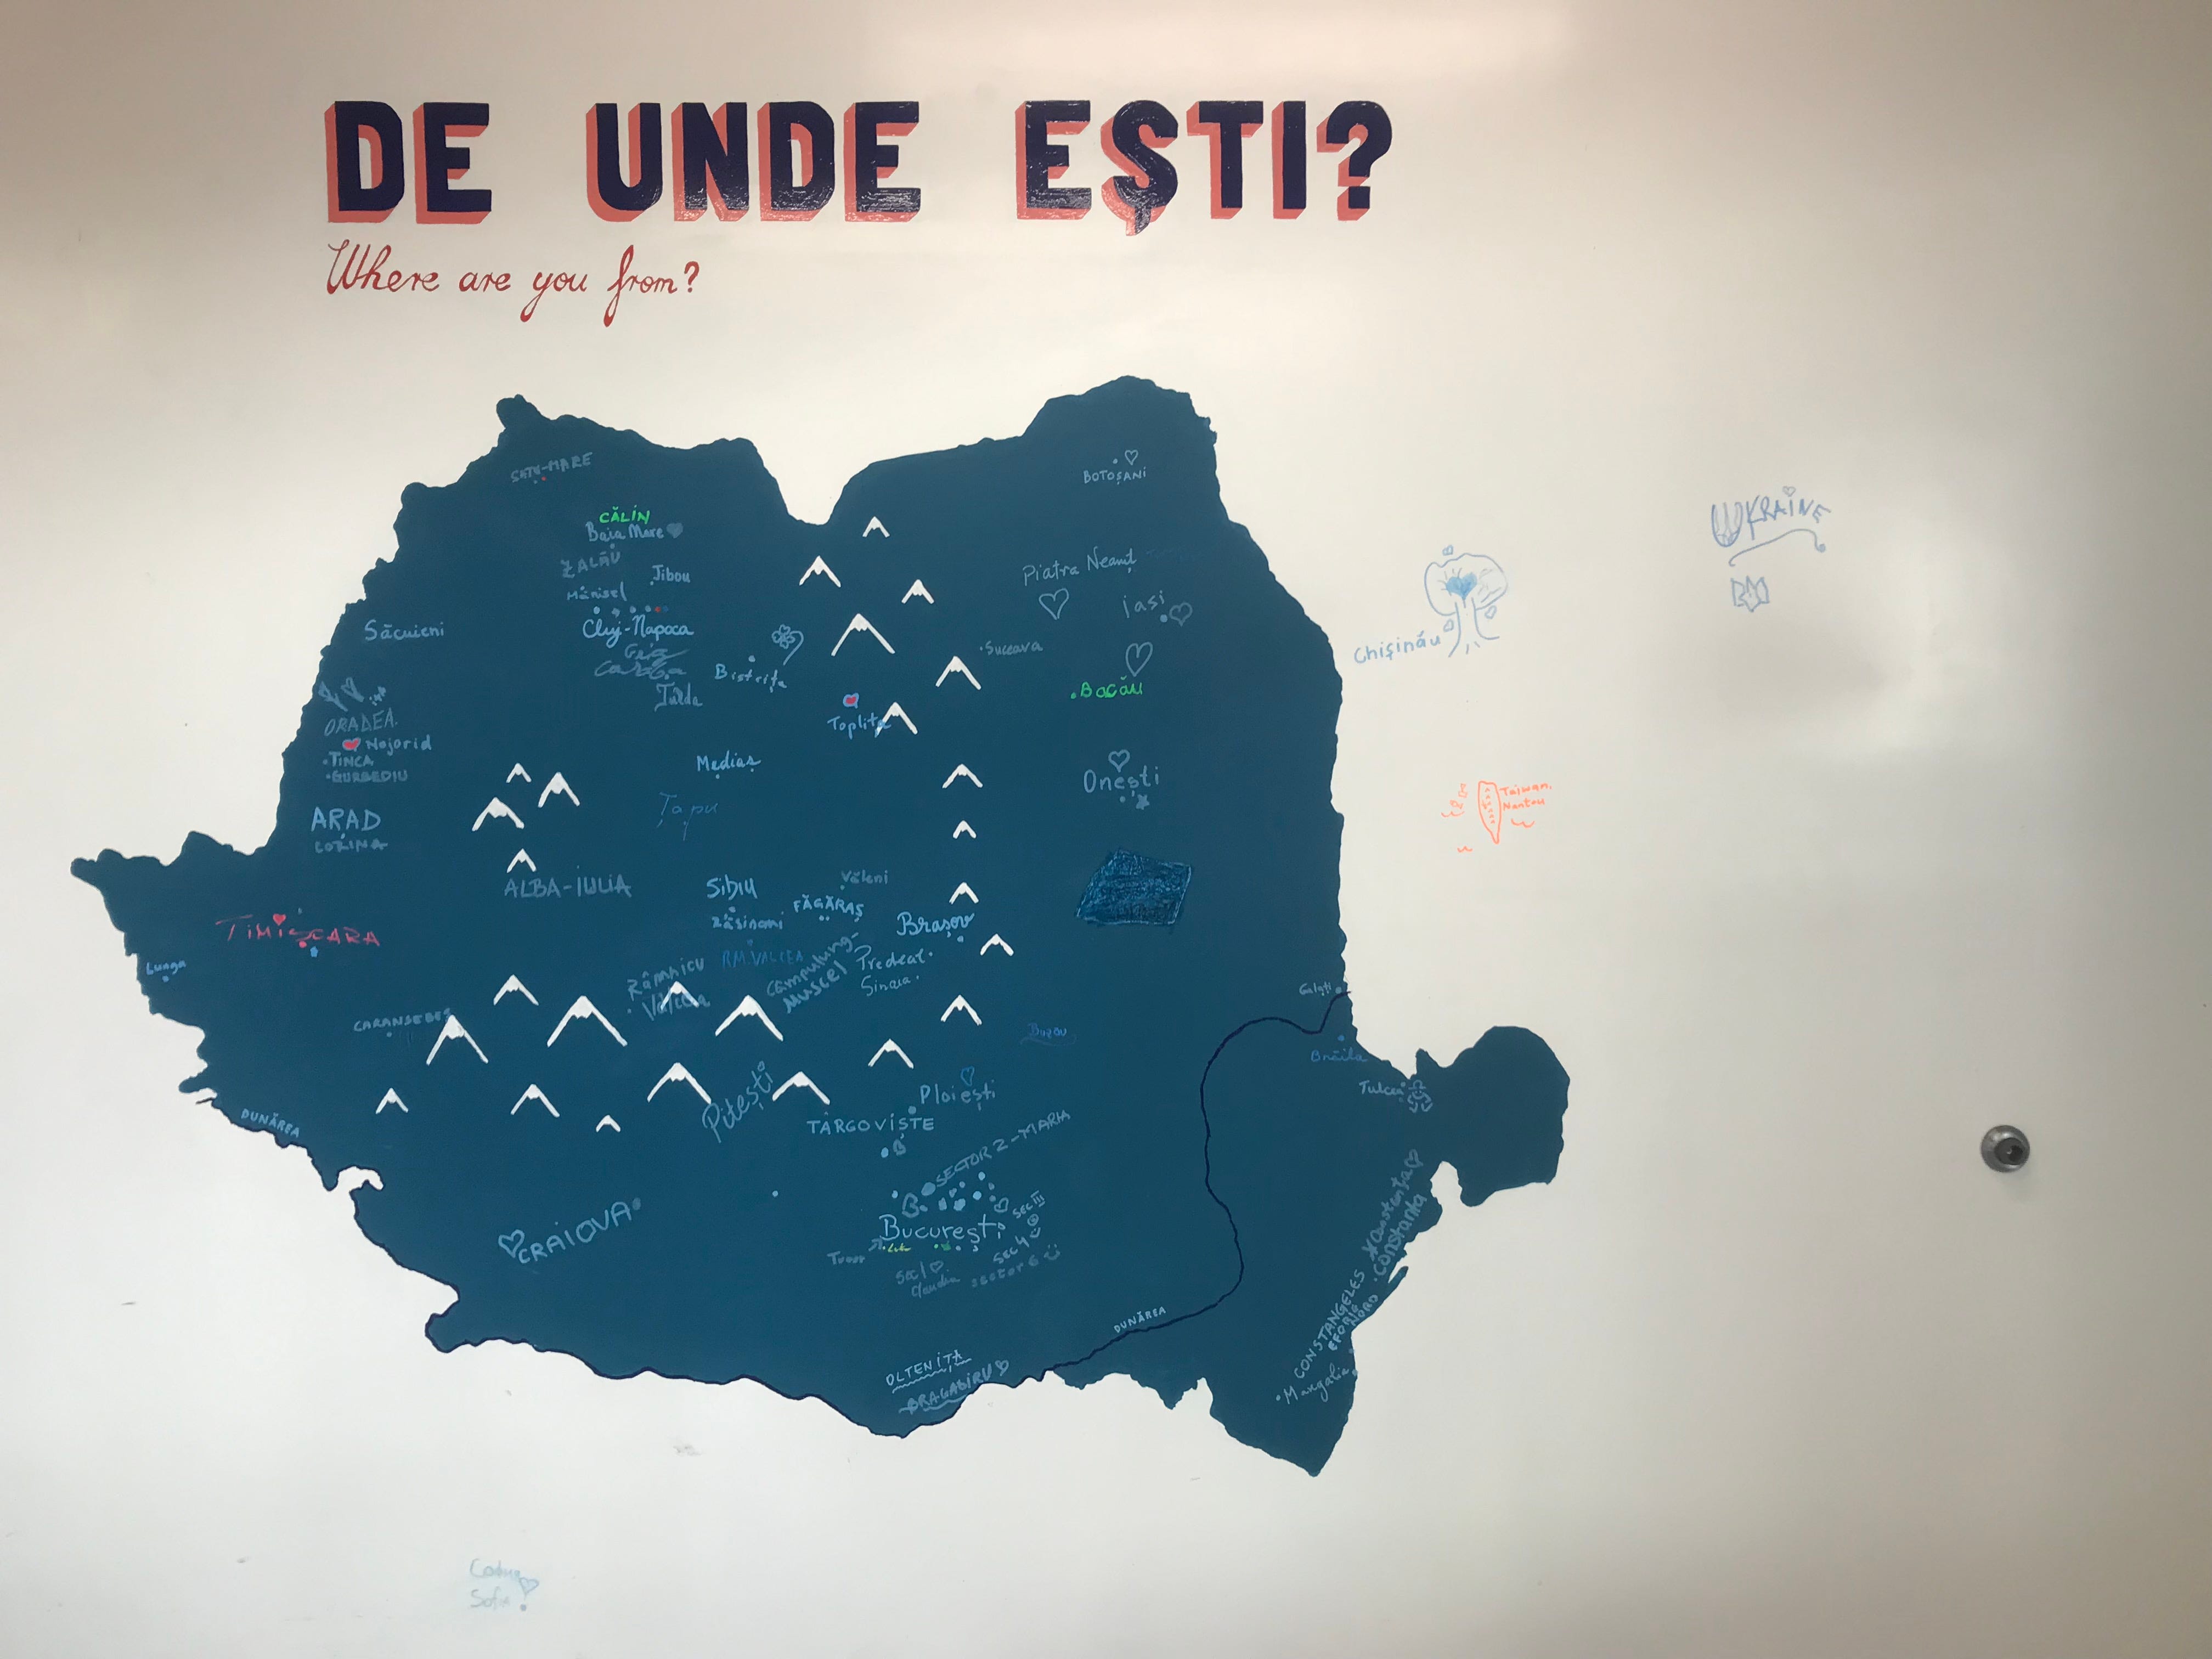 DE UNDE EȘTI?
Where are you from?
SATU-MARE
BOTOȘANI
CĂLIN
Baia Mare
ZALĂU
Jibou
Mănisel
Cluj-Napoca
Piatra Neamț
iasi
UKRAINE
Chișinău
Săcuieni
Suceava
Bistrița
Turda
Bacău
Toplița
ORADEA
Nojorid
TINCA
GURBEDIU
Mediaș
Țapu
Onești
Taiwan,
Nantou
ARAD
ALBA-IULIA
SibIU
Văleni
FĂGĂRAȘ
Brașov
TIMIȘOARA
Lunga
RM. VALCEA
Râmnicu
Vâlcea
Câmpulung-
MUSCEL
Predeal
Sinaia
CARANSEBEȘ
Galați
Buzău
Brăila
Tulcea
DUNĂREA
Pitești
Ploiești
TARGOVIȘTE
SECTOR 2-MARIA
București
SEC III
SEC 4
SEC 1
Claudia
sector 6
CRAIOVA
Constanța
Constanta
CONSTANGELES
EFORIE
NORD
Mangalia
DUNĂREA
OLTENIȚA
BRAGADIRU
Sofia